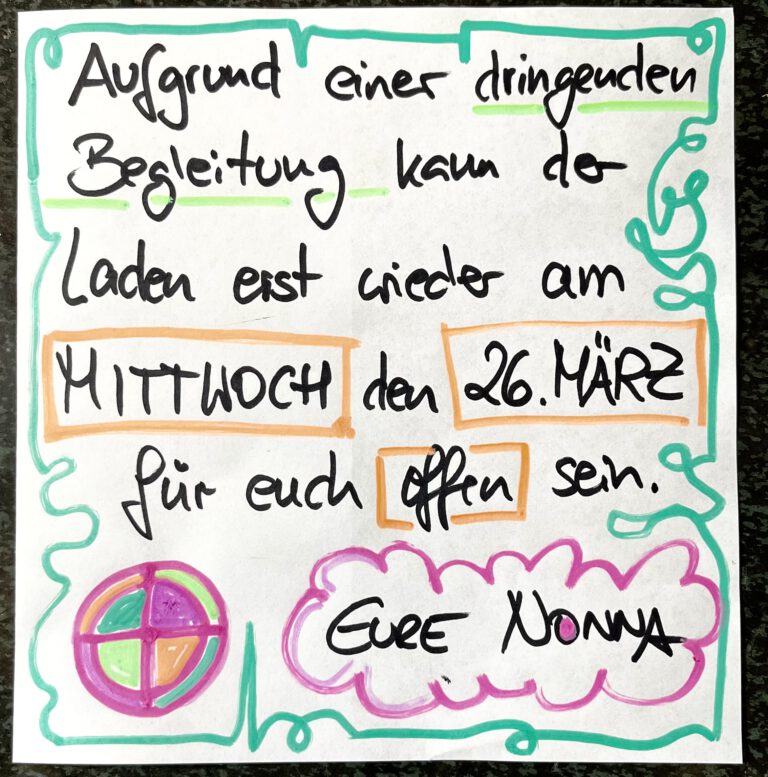 Aufgrund einer dringenden
Begleitung kann der
Laden erst wieder am
MITTWOCH den 26. MÄRZ
für euch offen sein.
EURE NONNA